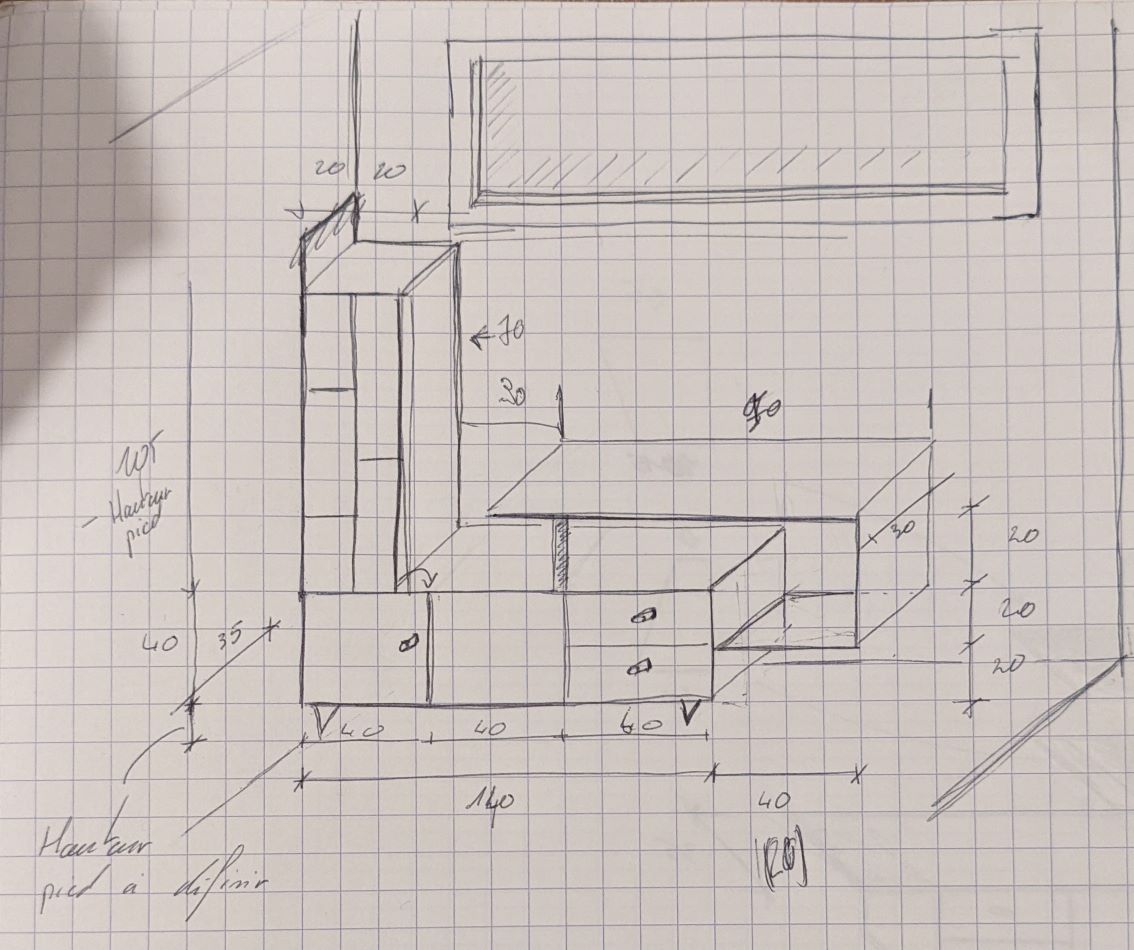 20 20
← 70
30
105
- Hauteur
pied
30
20
20
20
40
35
40 40 60
140
40
Hauteur
pied à définir